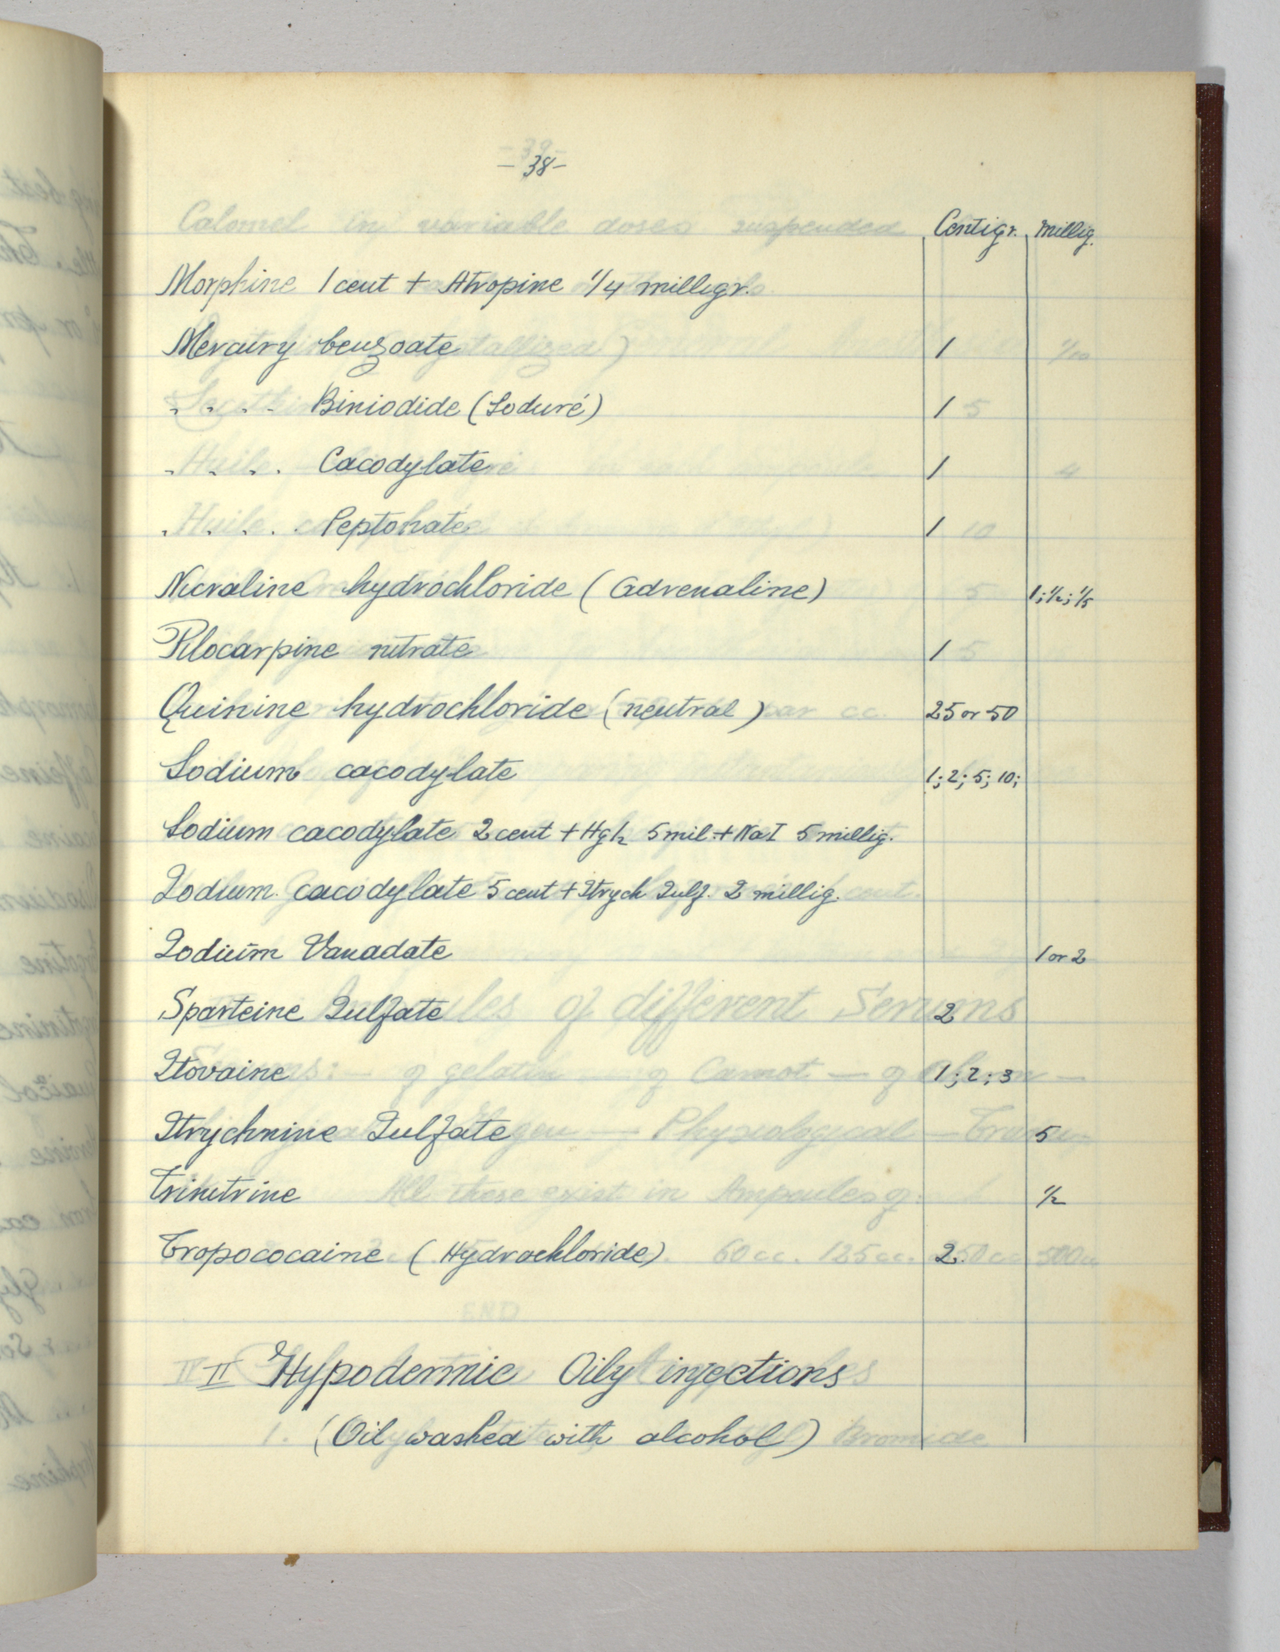 - 38 -
Centigr. Millig.
Morphine 1 cent + Atropine 1/4 milligr.
Mercury benzoate 1
" " " " Biniodide (Soduré) 1
" " " " Cacodylate 1
" " " " Peptonate 1
Nicraline hydrochloride (Adrenaline) 1; 1/2; 1/5
Pilocarpine nitrate 1
Quinine hydrochloride (neutral) 25 or 50
Sodium cacodylate 1; 2; 5; 10;
Sodium cacodylate 2 cent + HgI2 5 mil + NaI 5 millig.
Sodium cacodylate 5 cent + Strych Sulf. 2 millig.
Sodium Vanadate 1 or 2
Sparteine Sulfate 2
Stovaine 1; 2; 3
Strychnine Sulfate 5
Trinitrine 1/2
Tropococaine (Hydrochloride) 2
II Hypodermic Oily injections
(Oil washed with alcohol)